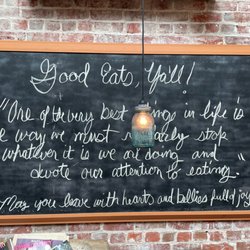 Good Eats, Ya'll!
"One of the very best things in life is
e way we must regularly stop
whatever it is we are doing and
devote our attention to eating.
May you leave with hearts and bellies full of joy